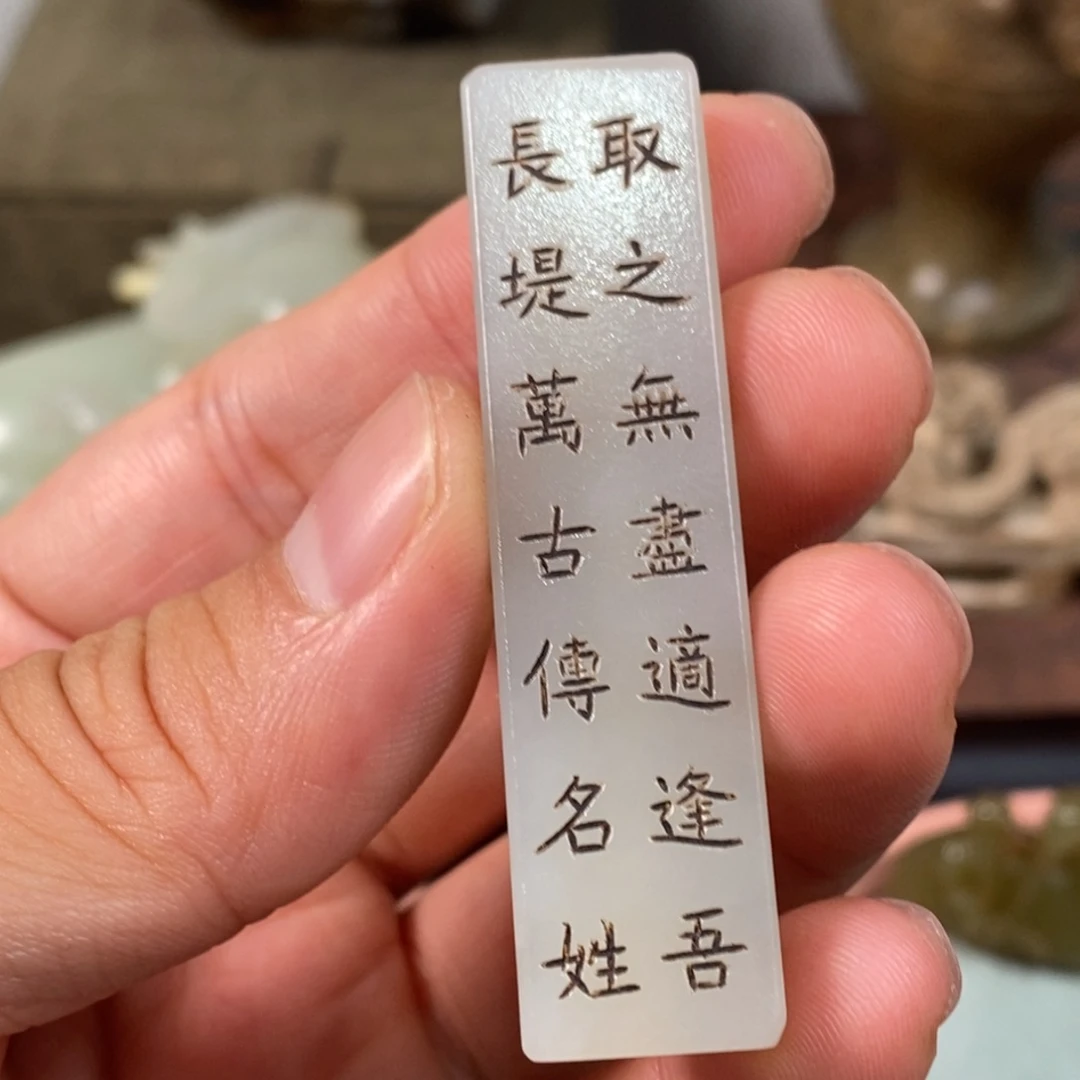 取之無盡適逢吾
長堤萬古傳名姓